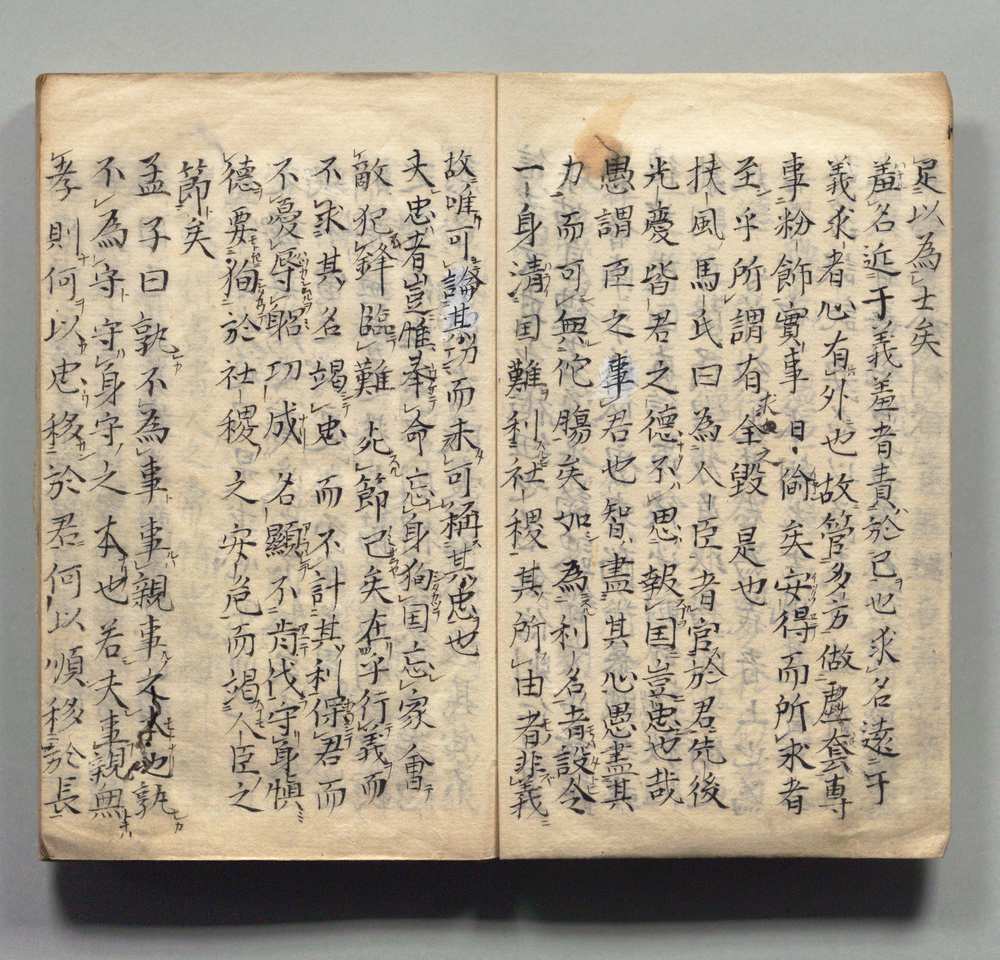 足以為士矣
羞名近于義羞者責於己也求名遠于
義求者心有外也故管多方做虛套專
事粉飾實事日偷矣安得而所求者
至乎所謂有求全之毀是也
扶風馬氏曰為人臣者官於君先後
光慶皆君之德不思報国豈忠也哉
愚謂臣之事君也智盡其心愚盡其
力而可無佗腸矣如為利名者設令
一身清国難利社稷其所由者非義
故唯可論其功而未可稱其忠也
夫忠者豈惟奉命忘身狥国忘家會
敵犯鋒臨難死節已矣在乎行義而
不求其名竭忠而不計其利保君而
不憂辱躬功成名顯不肯伐守身慎
德要狥於社稷之安危而竭人臣之
節矣
孟子曰孰不為事事親事之本也孰
不為守守身守之本也若夫事親無
孝則何以忠移於君何以順移於長